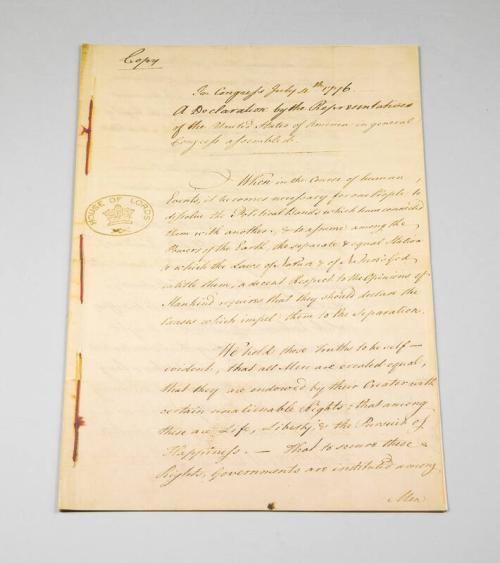 Copy
In Congress July 4th 1776.
A Declaration by the Representatives
of the United States of America in general
Congress assembled.
HOUSE OF LORDS
When in the Course of human
Events, it becomes necessary for one People to
dissolve the Political Bands which have connected
them with another, & to assume among the
Powers of the Earth, the separate & equal Station
to which the Laws of Nature & of Nature's God
entitle them, a decent Respect to the Opinions of
Mankind requires that they should declare the
Causes which impel them to the Separation.
We hold these Truths to be self-
evident, that all Men are created equal,
that they are endowed by their Creator with
certain unalienable Rights; that among
these are Life, Liberty, & the Pursuit of
Happiness. — That to secure these
Rights, Governments are instituted among
Men